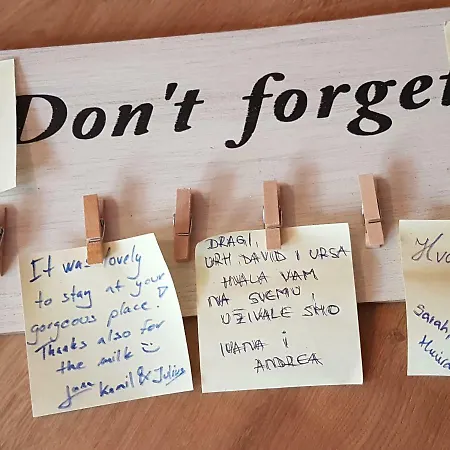 Don't forget
It was lovely
to stay at your
gorgeous place!
Thanks also for
the milk
Jana Kamil & Julius
DRAGI,
URH DAVID I URSA
HVALA VAM
NA SVEMU,
UŽIVALE SMO
IVANA i
ANDREA
Hva
Sarah,